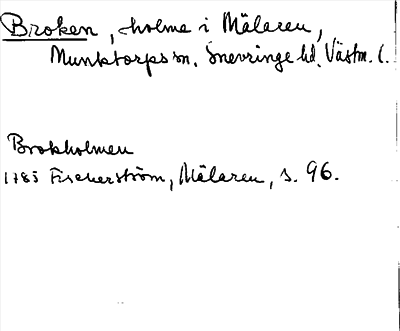 Broken, holme i Mälaren,
Munktorps sn, Snevringe hd, Västm. l.
Brokholmen
1785 Fischerström, Mälaren, s. 96.